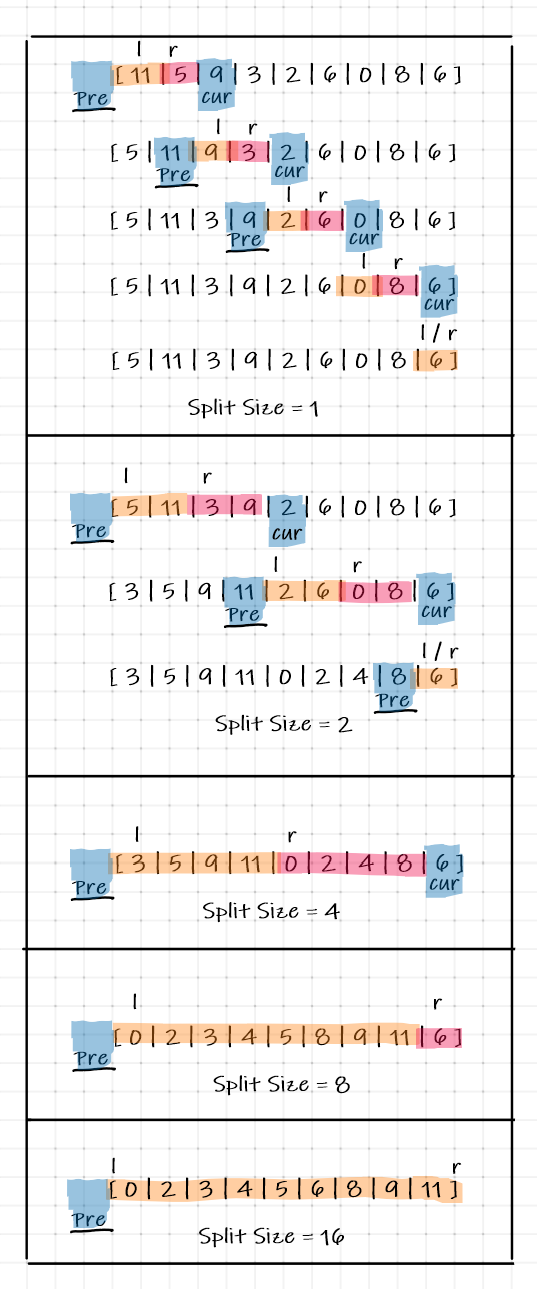 l r
[ 11 | 5 | 9 | 3 | 2 | 6 | 0 | 8 | 6 ]
Pre cur
l r
[ 5 | 11 | 9 | 3 | 2 | 6 | 0 | 8 | 6 ]
Pre cur
l r
[ 5 | 11 | 3 | 9 | 2 | 6 | 0 | 8 | 6 ]
Pre cur
l r
[ 5 | 11 | 3 | 9 | 2 | 6 | 0 | 8 | 6 ]
cur
l / r
[ 5 | 11 | 3 | 9 | 2 | 6 | 0 | 8 | 6 ]
Split Size = 1
l r
[ 5 | 11 | 3 | 9 | 2 | 6 | 0 | 8 | 6 ]
Pre cur
l r
[ 3 | 5 | 9 | 11 | 2 | 6 | 0 | 8 | 6 ]
Pre cur
l / r
[ 3 | 5 | 9 | 11 | 0 | 2 | 4 | 8 | 6 ]
Pre
Split Size = 2
l r
[ 3 | 5 | 9 | 11 | 0 | 2 | 4 | 8 | 6 ]
Pre cur
Split Size = 4
l r
[ 0 | 2 | 3 | 4 | 5 | 8 | 9 | 11 | 6 ]
Pre
Split Size = 8
l r
[ 0 | 2 | 3 | 4 | 5 | 6 | 8 | 9 | 11 ]
Pre
Split Size = 16